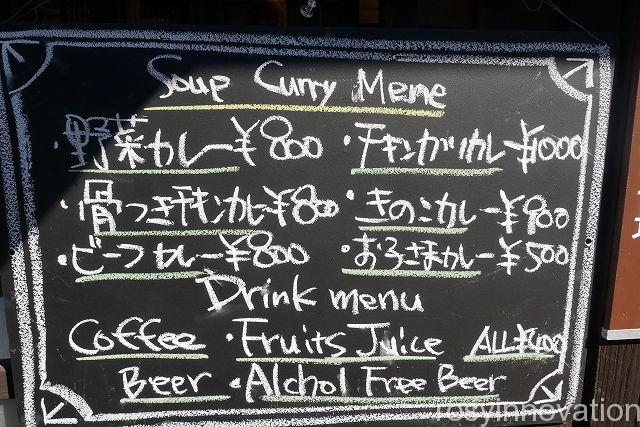 Soup Curry Meme
・野菜カレー¥800 ・チキンカツカレー¥1000
・骨つきチキンカレー¥800 ・きのこカレー¥900
・ビーフカレー¥800 ・お子さまカレー¥500
Drink menu
Coffee ・Fruits Juice ALL¥400
Beer ・Alchol Free Beer
rosyinnovation